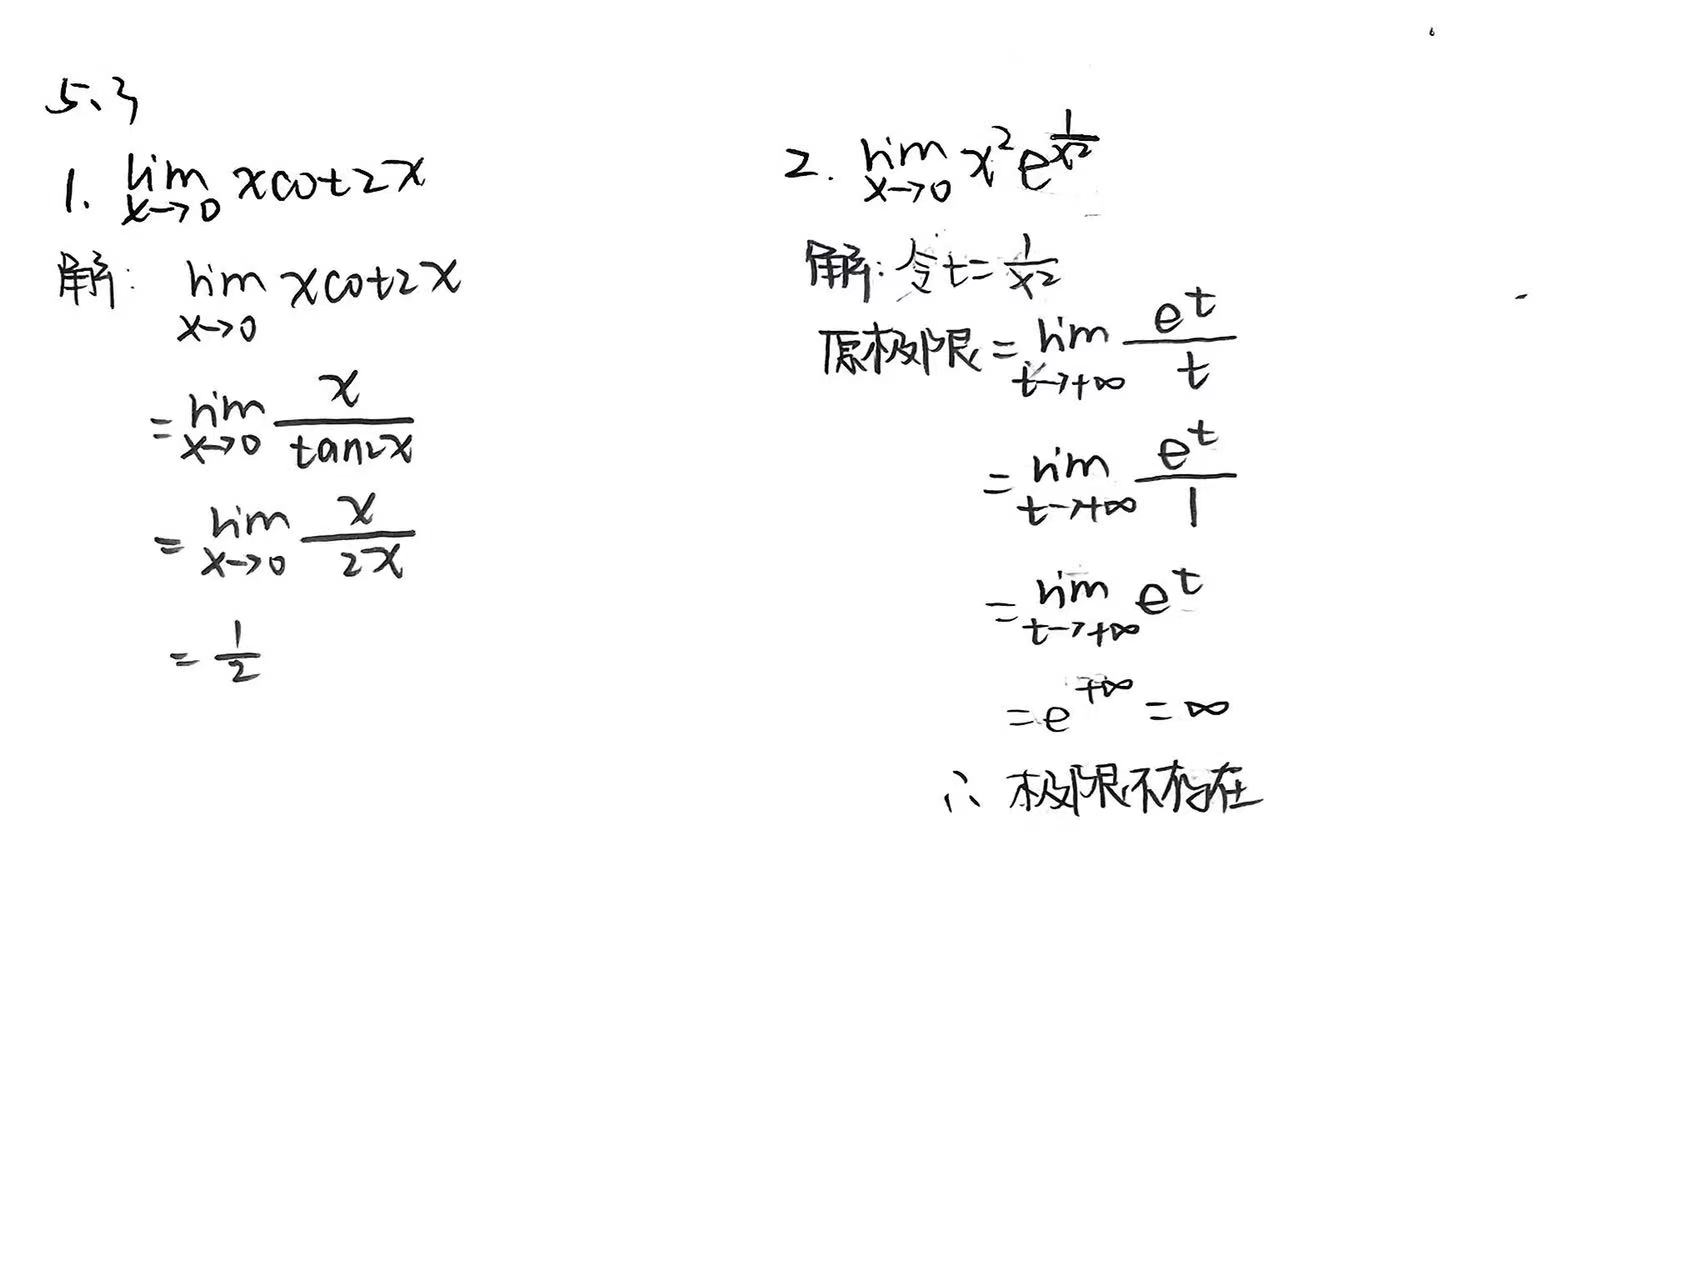 5、3
1. lim x→0 xcot2x
解: lim x→0 xcot2x
= lim x→0 x/tan2x
= lim x→0 x/2x
= 1/2
2. lim x→0 x²e^(1/x²)
解: 令t=1/x²
原极限= lim t→+∞ e^t/t
= lim t→+∞ e^t/1
= lim t→+∞ e^t
= e^(+∞) = ∞
∴ 极限不存在